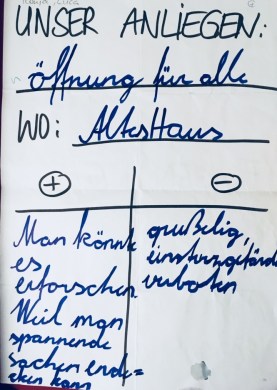 UNSER ANLIEGEN:
öffnung für alle
WO: AltesHaus
+
Man könnte
es
erforschen
Weil man
spannende
sachen endt=
eken kann
-
grußelig,
verboten